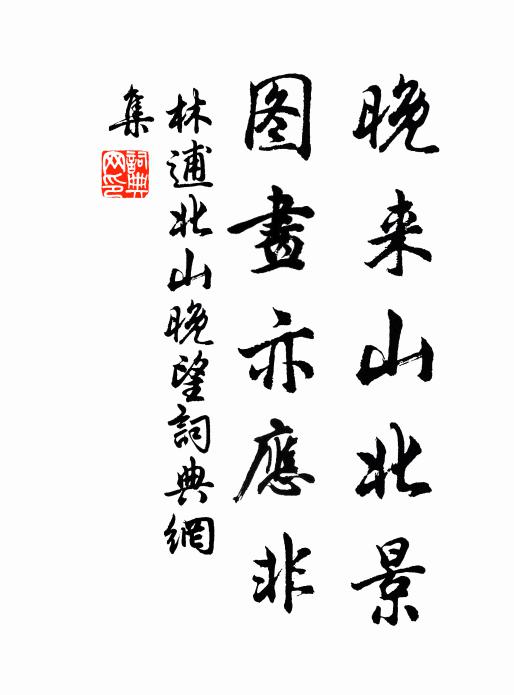 晚来山北景
图畫亦應非
林逋北山晚望詞典網
集
詞典
网印